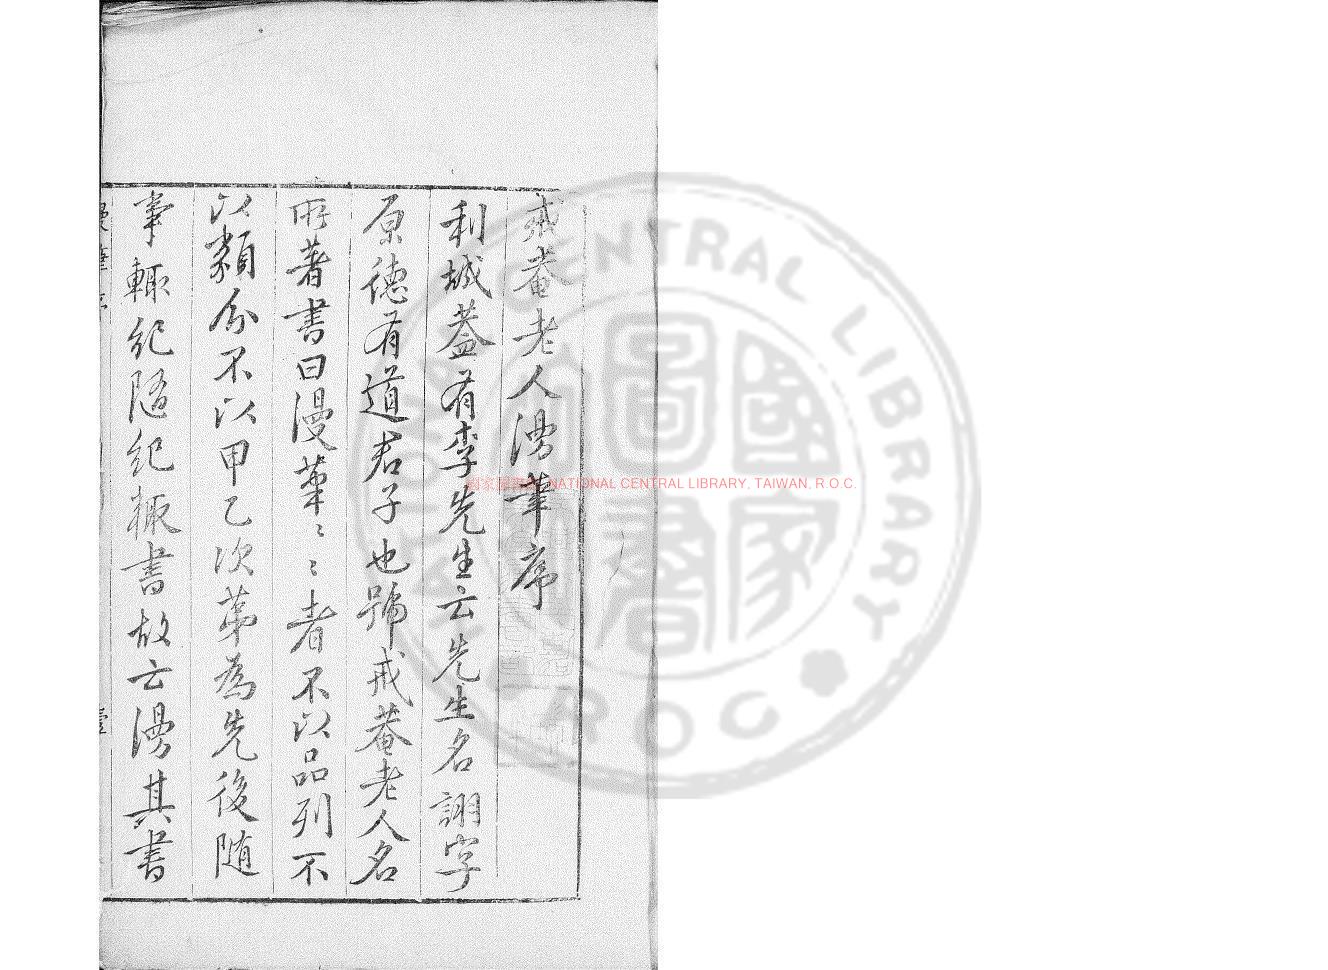 戒菴老人漫筆序
利城葢有李先生云先生名詡字
原德有道君子也號戒菴老人名
所著書曰漫筆〻〻者不以品列不
以類分不以甲乙次第為先後隨
事輒紀隨紀輒書故云漫其書
國家圖書館 NATIONAL CENTRAL LIBRARY, TAIWAN, R.O.C.
CENTRAL LIBRARY
R.O.C
國家圖書